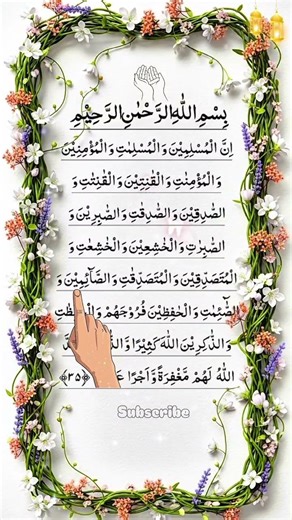 بِسْمِ اللّٰهِ الرَّحْمٰنِ الرَّحِيْمِ
اِنَّ الْمُسْلِمِيْنَ وَالْمُسْلِمٰتِ وَالْمُؤْمِنِيْنَ
وَالْمُؤْمِنٰتِ وَالْقٰنِتِيْنَ وَالْقٰنِتٰتِ وَ
الصّٰدِقِيْنَ وَالصّٰدِقٰتِ وَالصّٰبِرِيْنَ وَ
الصّٰبِرٰتِ وَالْخٰشِعِيْنَ وَالْخٰشِعٰتِ وَ
الْمُتَصَدِّقِيْنَ وَالْمُتَصَدِّقٰتِ وَالصَّآئِمِيْنَ وَ
الصّٰٓئِمٰتِ وَالْحٰفِظِيْنَ فُرُوْجَهُمْ
وَالذّٰكِرِيْنَ اللّٰهَ كَثِيْرًا
اللّٰهُ لَهُمْ مَّغْفِرَةً وَّاَجْرًا ﴿۳۵﴾
Subscribe